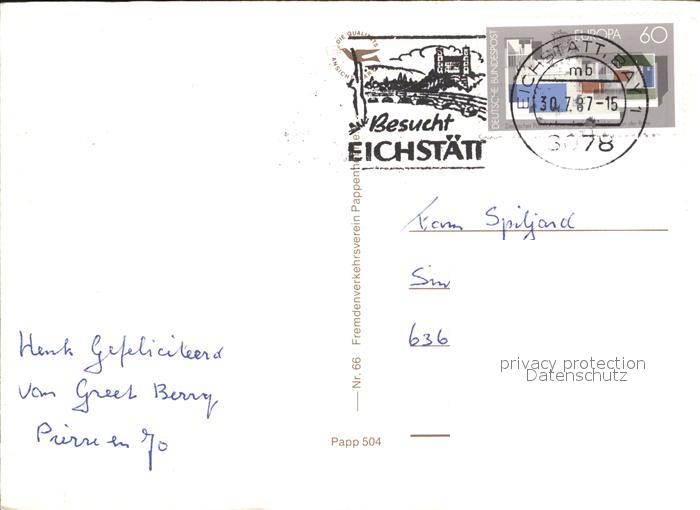 DIE QUALITÄTS
ANSICHTSKARTE
Besucht
EICHSTÄTT
DEUTSCHE BUNDESPOST
EUROPA 60
EICHSTÄTT, BAY 1
mb
30.7.87-15
8078
Fam Spiljard
Sin
636
privacy protection
Datenschutz
Henk Gefeliciteerd
van Greet Berry
Pierre en Jo
Nr. 66 Fremdenverkehrsverein Pappenhe
Papp 504